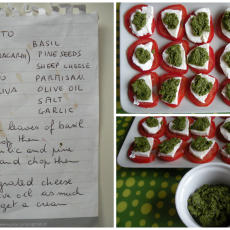 TO
BASIL
PINE SEEDS
SHEEP CHEESE
PARMISAN
OLIVE OIL
SALT
GARLIC
leaves of basil
them
and pine
and chop them
grated cheese
oil as much
get a cream